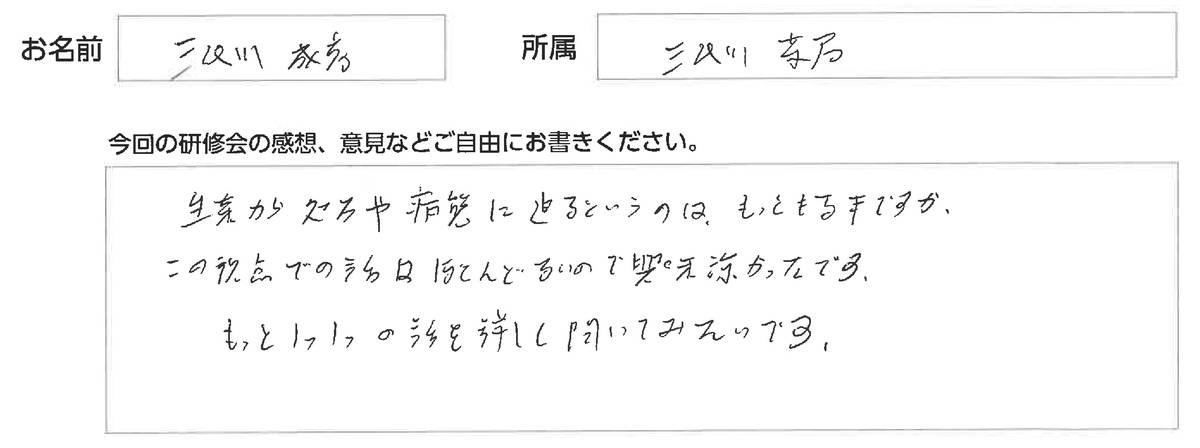 お名前 三及川
所属 三及川 薬局
今回の研修会の感想、意見などご自由にお書きください。
生薬から処方や病態に迫るというのは、もっともな事ですが、
この視点での話はほとんどないので興味深かったです。
もっと1つ1つの話を詳しく聞いてみたいです。